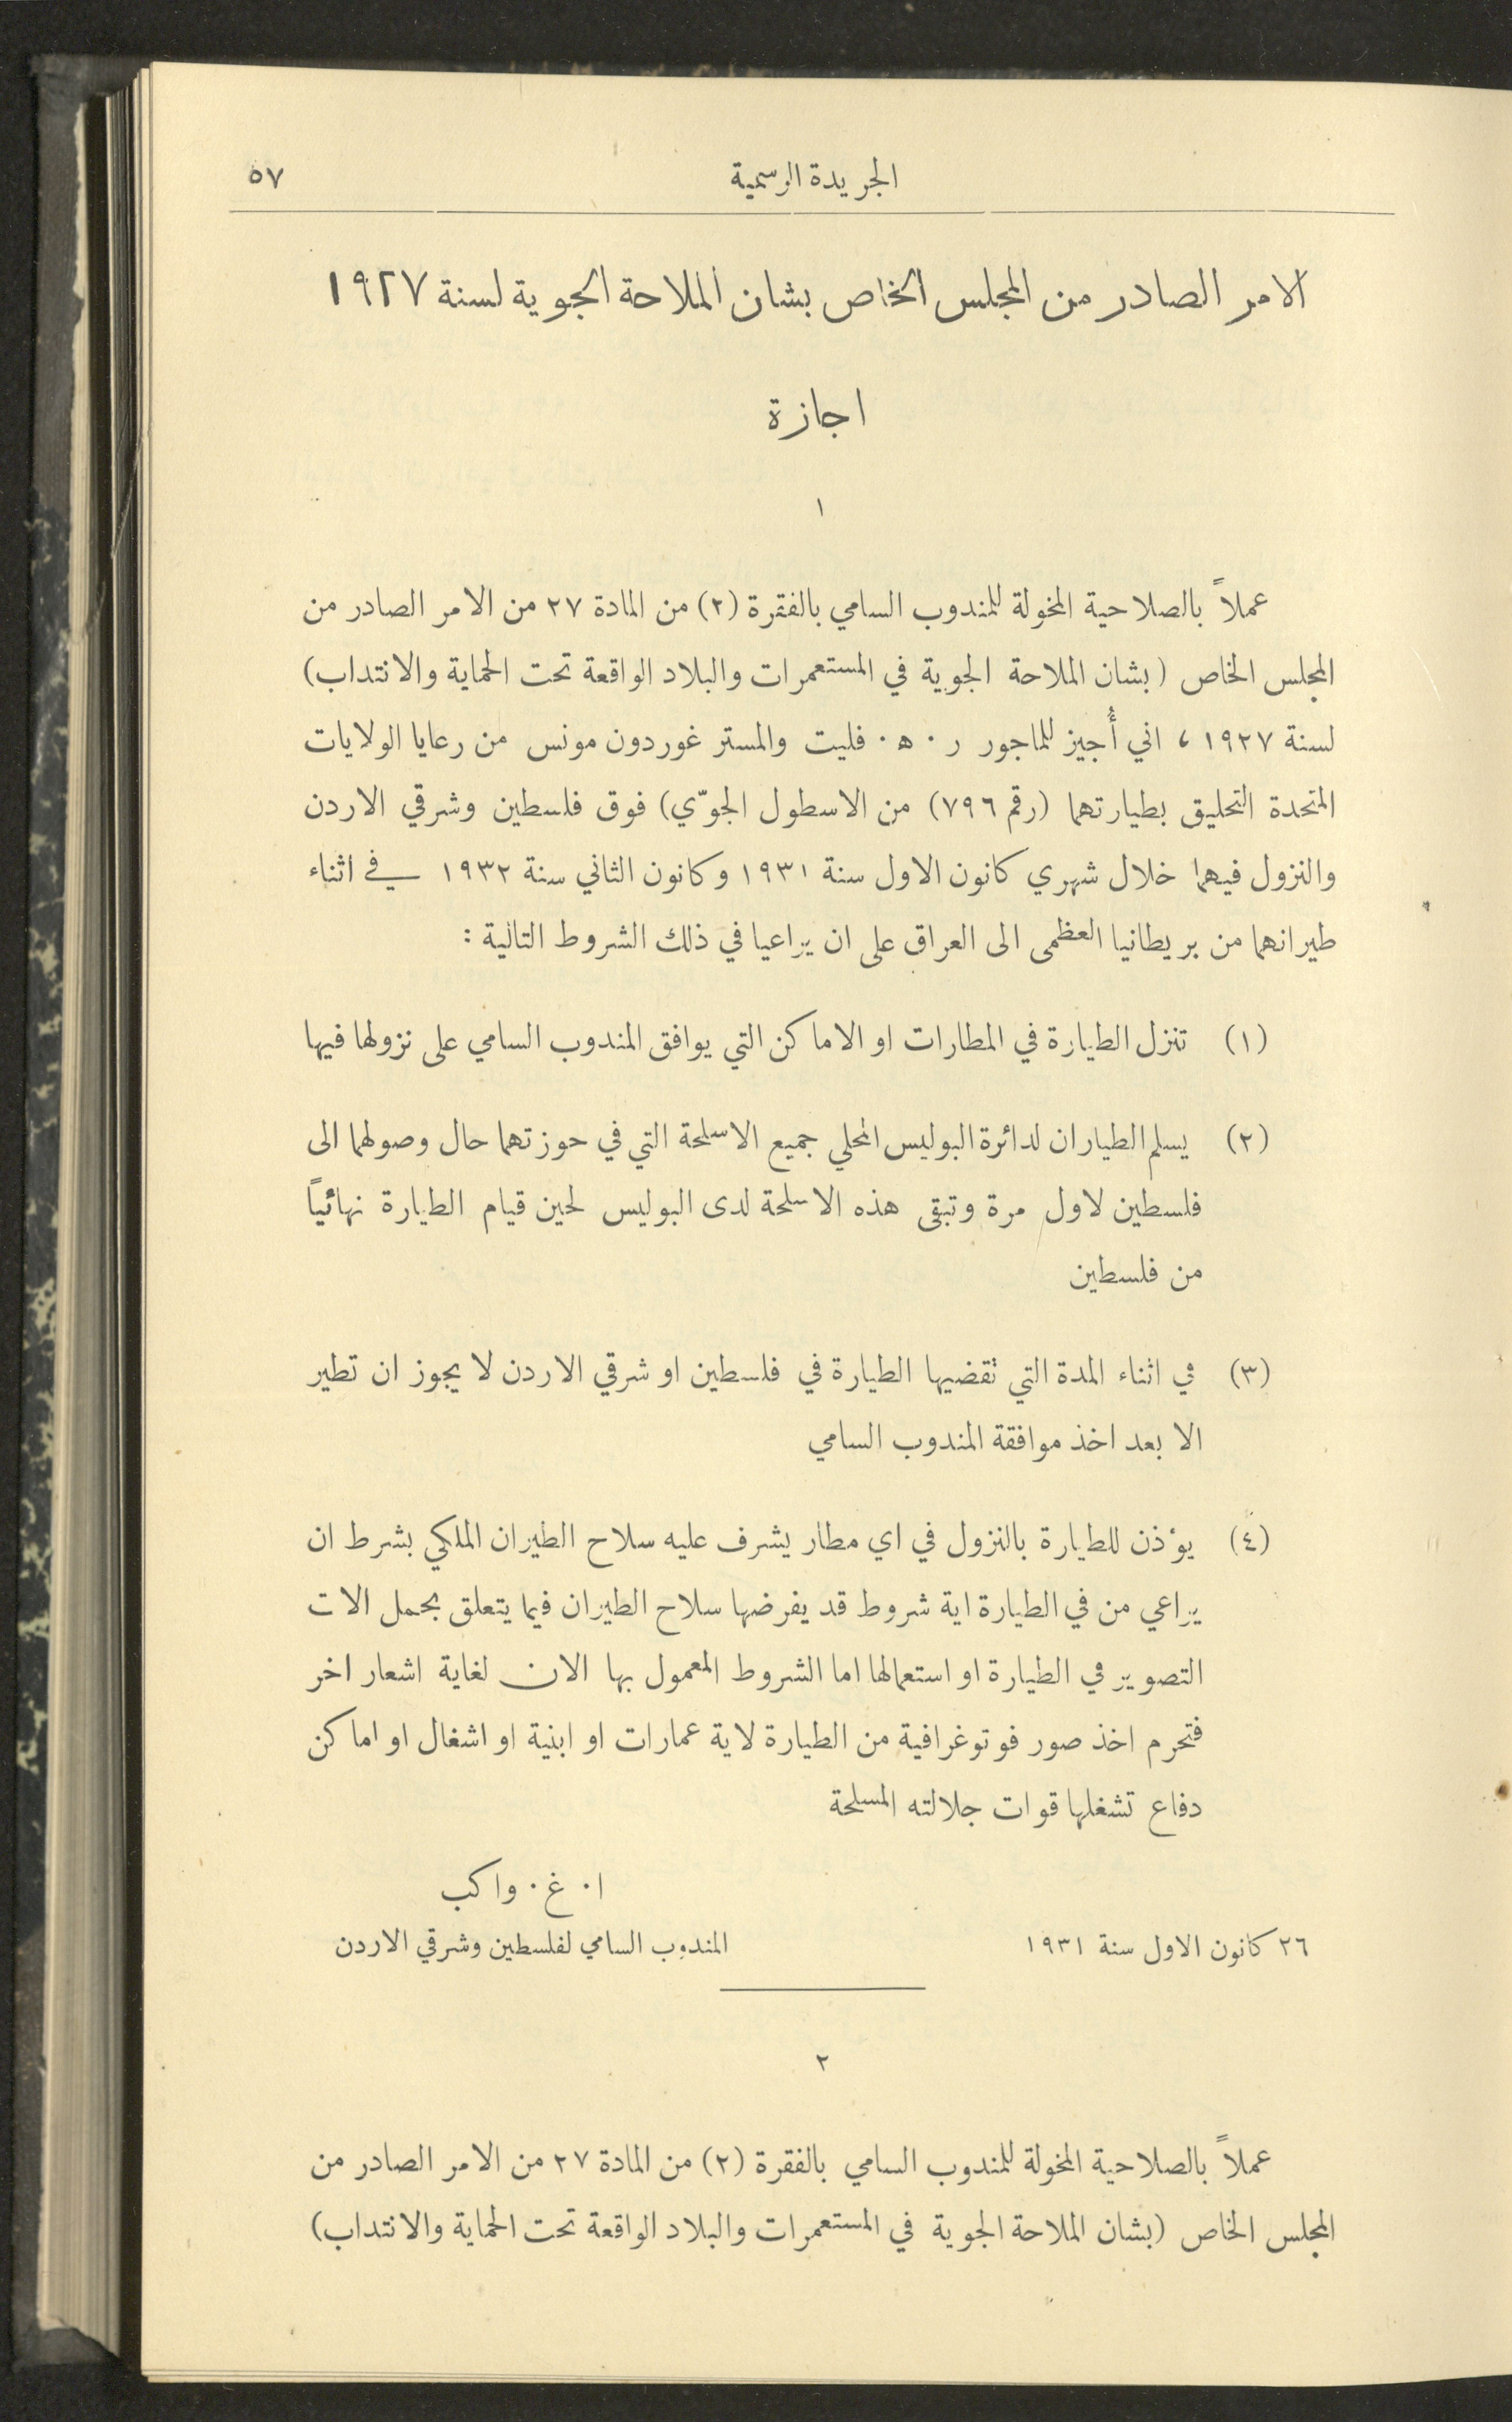 الجريدة الرسمية ٥٧
الامر الصادر من المجلس الخاص بشان الملاحة الجوية لسنة ١٩٢٧
اجازة
١
عملاً بالصلاحية المخولة للمندوب السامي بالفقرة (٢) من المادة ٢٧ من الامر الصادر من
المجلس الخاص (بشان الملاحة الجوية في المستعمرات والبلاد الواقعة تحت الحماية والانتداب)
لسنة ١٩٢٧ ، اني أُجيز للماجور ر ٠ ه ٠ فليت والمستر غوردون مونس من رعايا الولايات
المتحدة التحليق بطيارتهما (رقم ٧٩٦) من الاسطول الجوّي) فوق فلسطين وشرقي الاردن
والنزول فيهما خلال شهري كانون الاول سنة ١٩٣١ وكانون الثاني سنة ١٩٣٢ في اثناء
طيرانهما من بريطانيا العظمى الى العراق على ان يراعيا في ذلك الشروط التالية :
(١) تنزل الطيارة في المطارات او الاماكن التي يوافق المندوب السامي على نزولها فيها
(٢) يسلم الطياران لدائرة البوليس المحلي جميع الاسلحة التي في حوزتهما حال وصولهما الى
فلسطين لاول مرة وتبقى هذه الاسلحة لدى البوليس لحين قيام الطيارة نهائياً
من فلسطين
(٣) في اثناء المدة التي تقضيها الطيارة في فلسطين او شرقي الاردن لا يجوز ان تطير
الا بعد اخذ موافقة المندوب السامي
(٤) يوءذن للطيارة بالنزول في اي مطار يشرف عليه سلاح الطيران الملكي بشرط ان
يراعي من في الطيارة اية شروط قد يفرضها سلاح الطيران فيما يتعلق بحمل الات
التصوير في الطيارة او استعمالها اما الشروط المعمول بها الان لغاية اشعار اخر
فتحرم اخذ صور فوتوغرافية من الطيارة لاية عمارات او ابنية او اشغال او اماكن
دفاع تشغلها قوات جلالته المسلحة
ا ٠ غ ٠ واكب
٢٦ كانون الاول سنة ١٩٣١ المندوب السامي لفلسطين وشرقي الاردن
٢
عملاً بالصلاحية المخولة للمندوب السامي بالفقرة (٢) من المادة ٢٧ من الامر الصادر من
المجلس الخاص (بشان الملاحة الجوية في المستعمرات والبلاد الواقعة تحت الحماية والانتداب)